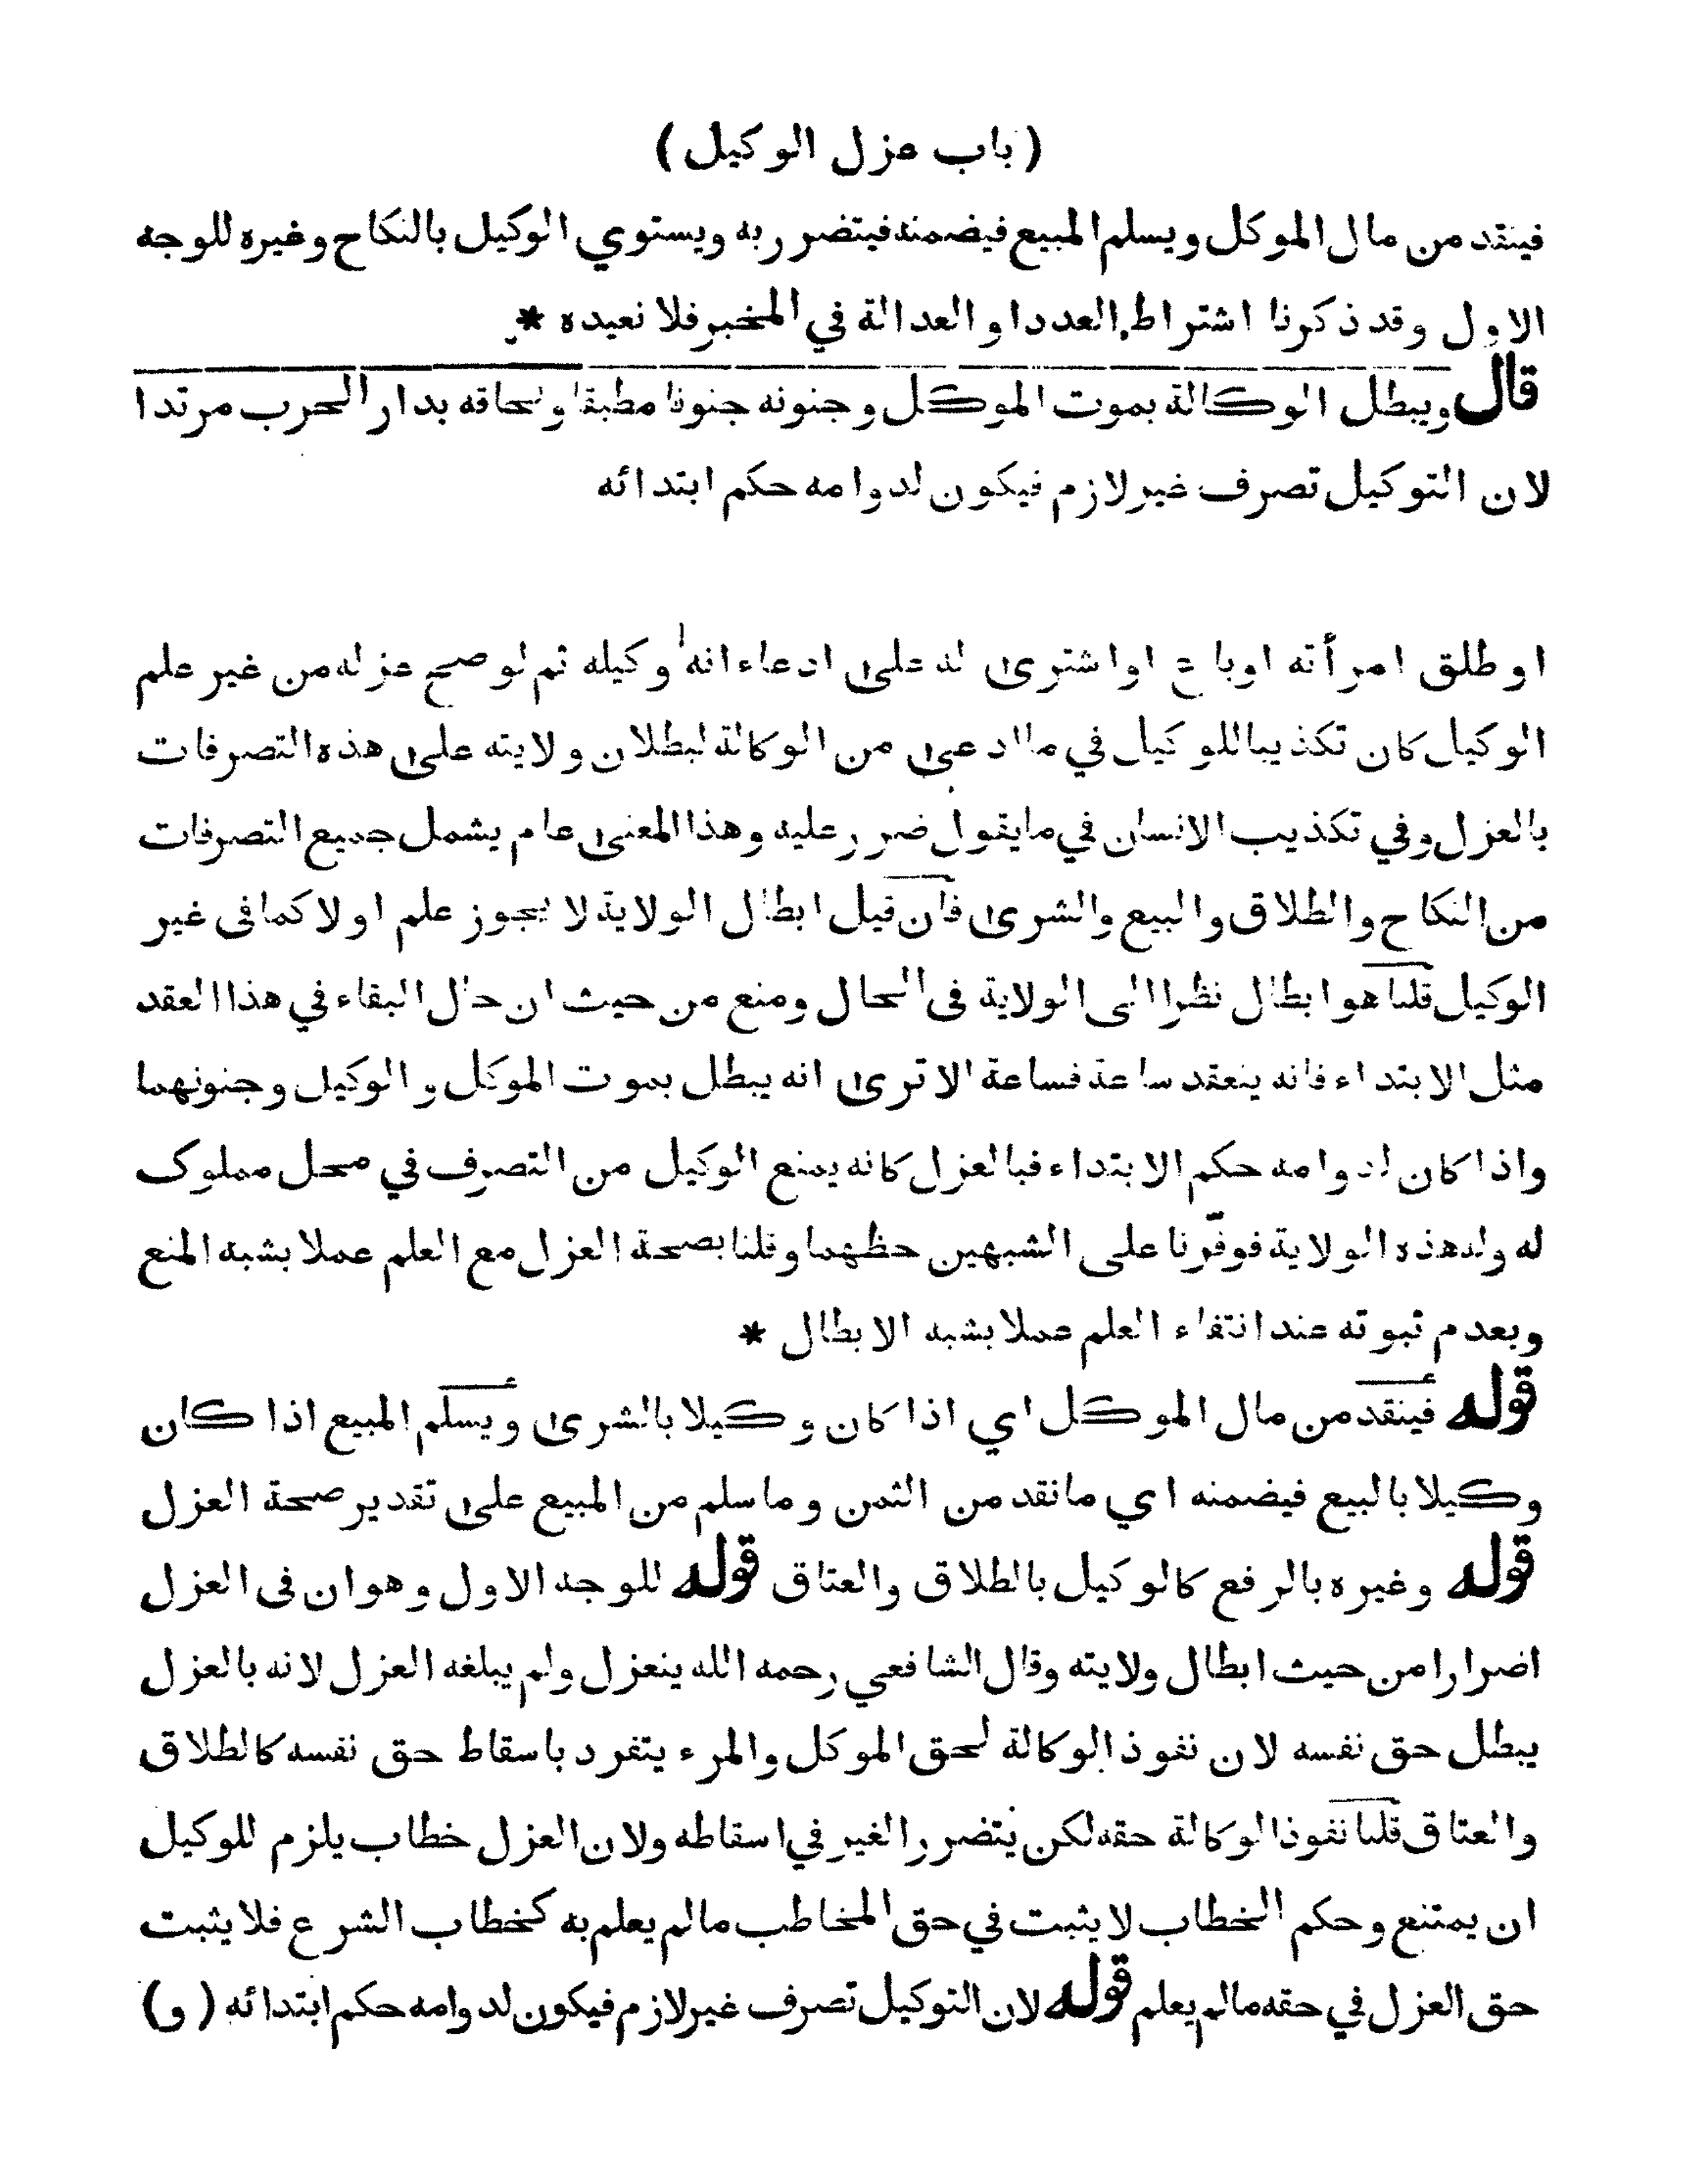 ( باب عزل الوكيل )
فينقد من مال الموكل ويسلم المبيع فيضمنه فيتضرر به ويستوي الوكيل بالنكاح وغيره للوجه
الاول وقد ذكرنا اشتراط العدد او العدالة في المخبر فلا نعيده *
قال ويبطل الوكالة بموت الموكل وجنونه جنونا مطبقا ولحاقه بدار الحرب مرتدا
لان التوكيل تصرف غير لازم فيكون لدوامه حكم ابتدائه
او طلق امرأته او باع او اشترى له على ادعاء انه وكيله ثم لو صح عزله من غير علم
الوكيل كان تكذيبا للوكيل في ما ادعى من الوكالة لبطلان ولايته على هذه التصرفات
بالعزل وفي تكذيب الانسان في ما يقول ضرر عليه وهذا المعنى عام يشمل جميع التصرفات
من النكاح والطلاق والبيع والشرى فان قيل ابطال الولاية لا يجوز علم او لا كما فى غير
الوكيل قلنا هو ابطال نظرا الى الولاية فى الحال ومنع من حيث ان حال البقاء في هذا العقد
مثل الابتداء فانه ينعقد ساعة فساعة الا ترى انه يبطل بموت الموكل و الوكيل وجنونهما
واذا كان لدوامه حكم الابتداء فبالعزل كانه يمنع الوكيل من التصرف في محل مملوك
له وله هذه الولاية فوفّرنا على الشبهين حظهما وقلنا بصحة العزل مع العلم عملا بشبه المنع
وبعدم ثبوته عند انتفاء العلم عملا بشبه الابطال *
قوله فينقد من مال الموكل اي اذا كان وكيلا بالشرى ويسلم المبيع اذا كان
وكيلا بالبيع فيضمنه اي ما نقد من الثمن وما سلم من المبيع على تقدير صحة العزل
قوله وغيره بالرفع كالوكيل بالطلاق والعتاق قوله للوجه الاول وهو ان فى العزل
اضرارا من حيث ابطال ولايته وقال الشافعي رحمه الله ينعزل ولم يبلغه العزل لانه بالعزل
يبطل حق نفسه لان نفوذ الوكالة لحق الموكل والمرء يتفرد باسقاط حق نفسه كالطلاق
والعتاق قلنا نفوذ الوكالة حقه لكن يتضرر الغير في اسقاطه ولان العزل خطاب يلزم للوكيل
ان يمتنع وحكم الخطاب لا يثبت في حق المخاطب ما لم يعلم به كخطاب الشرع فلا يثبت
حق العزل في حقه ما لم يعلم قوله لان التوكيل تصرف غير لازم فيكون لدوامه حكم ابتدائه ( و )